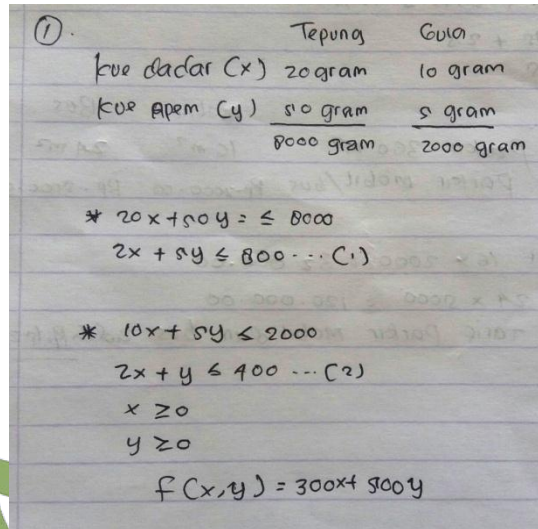 ①.
Tepung Gula
kue dadar (x) 20 gram 10 gram
kue Apem (y) 50 gram 5 gram
8000 gram 2000 gram
* 20x + 50y = ≤ 8000
2x + 5y ≤ 800 ... (1)
* 10x + 5y ≤ 2000
2x + y ≤ 400 ... (2)
x ≥ 0
y ≥ 0
f (x,y) = 300x + 500y